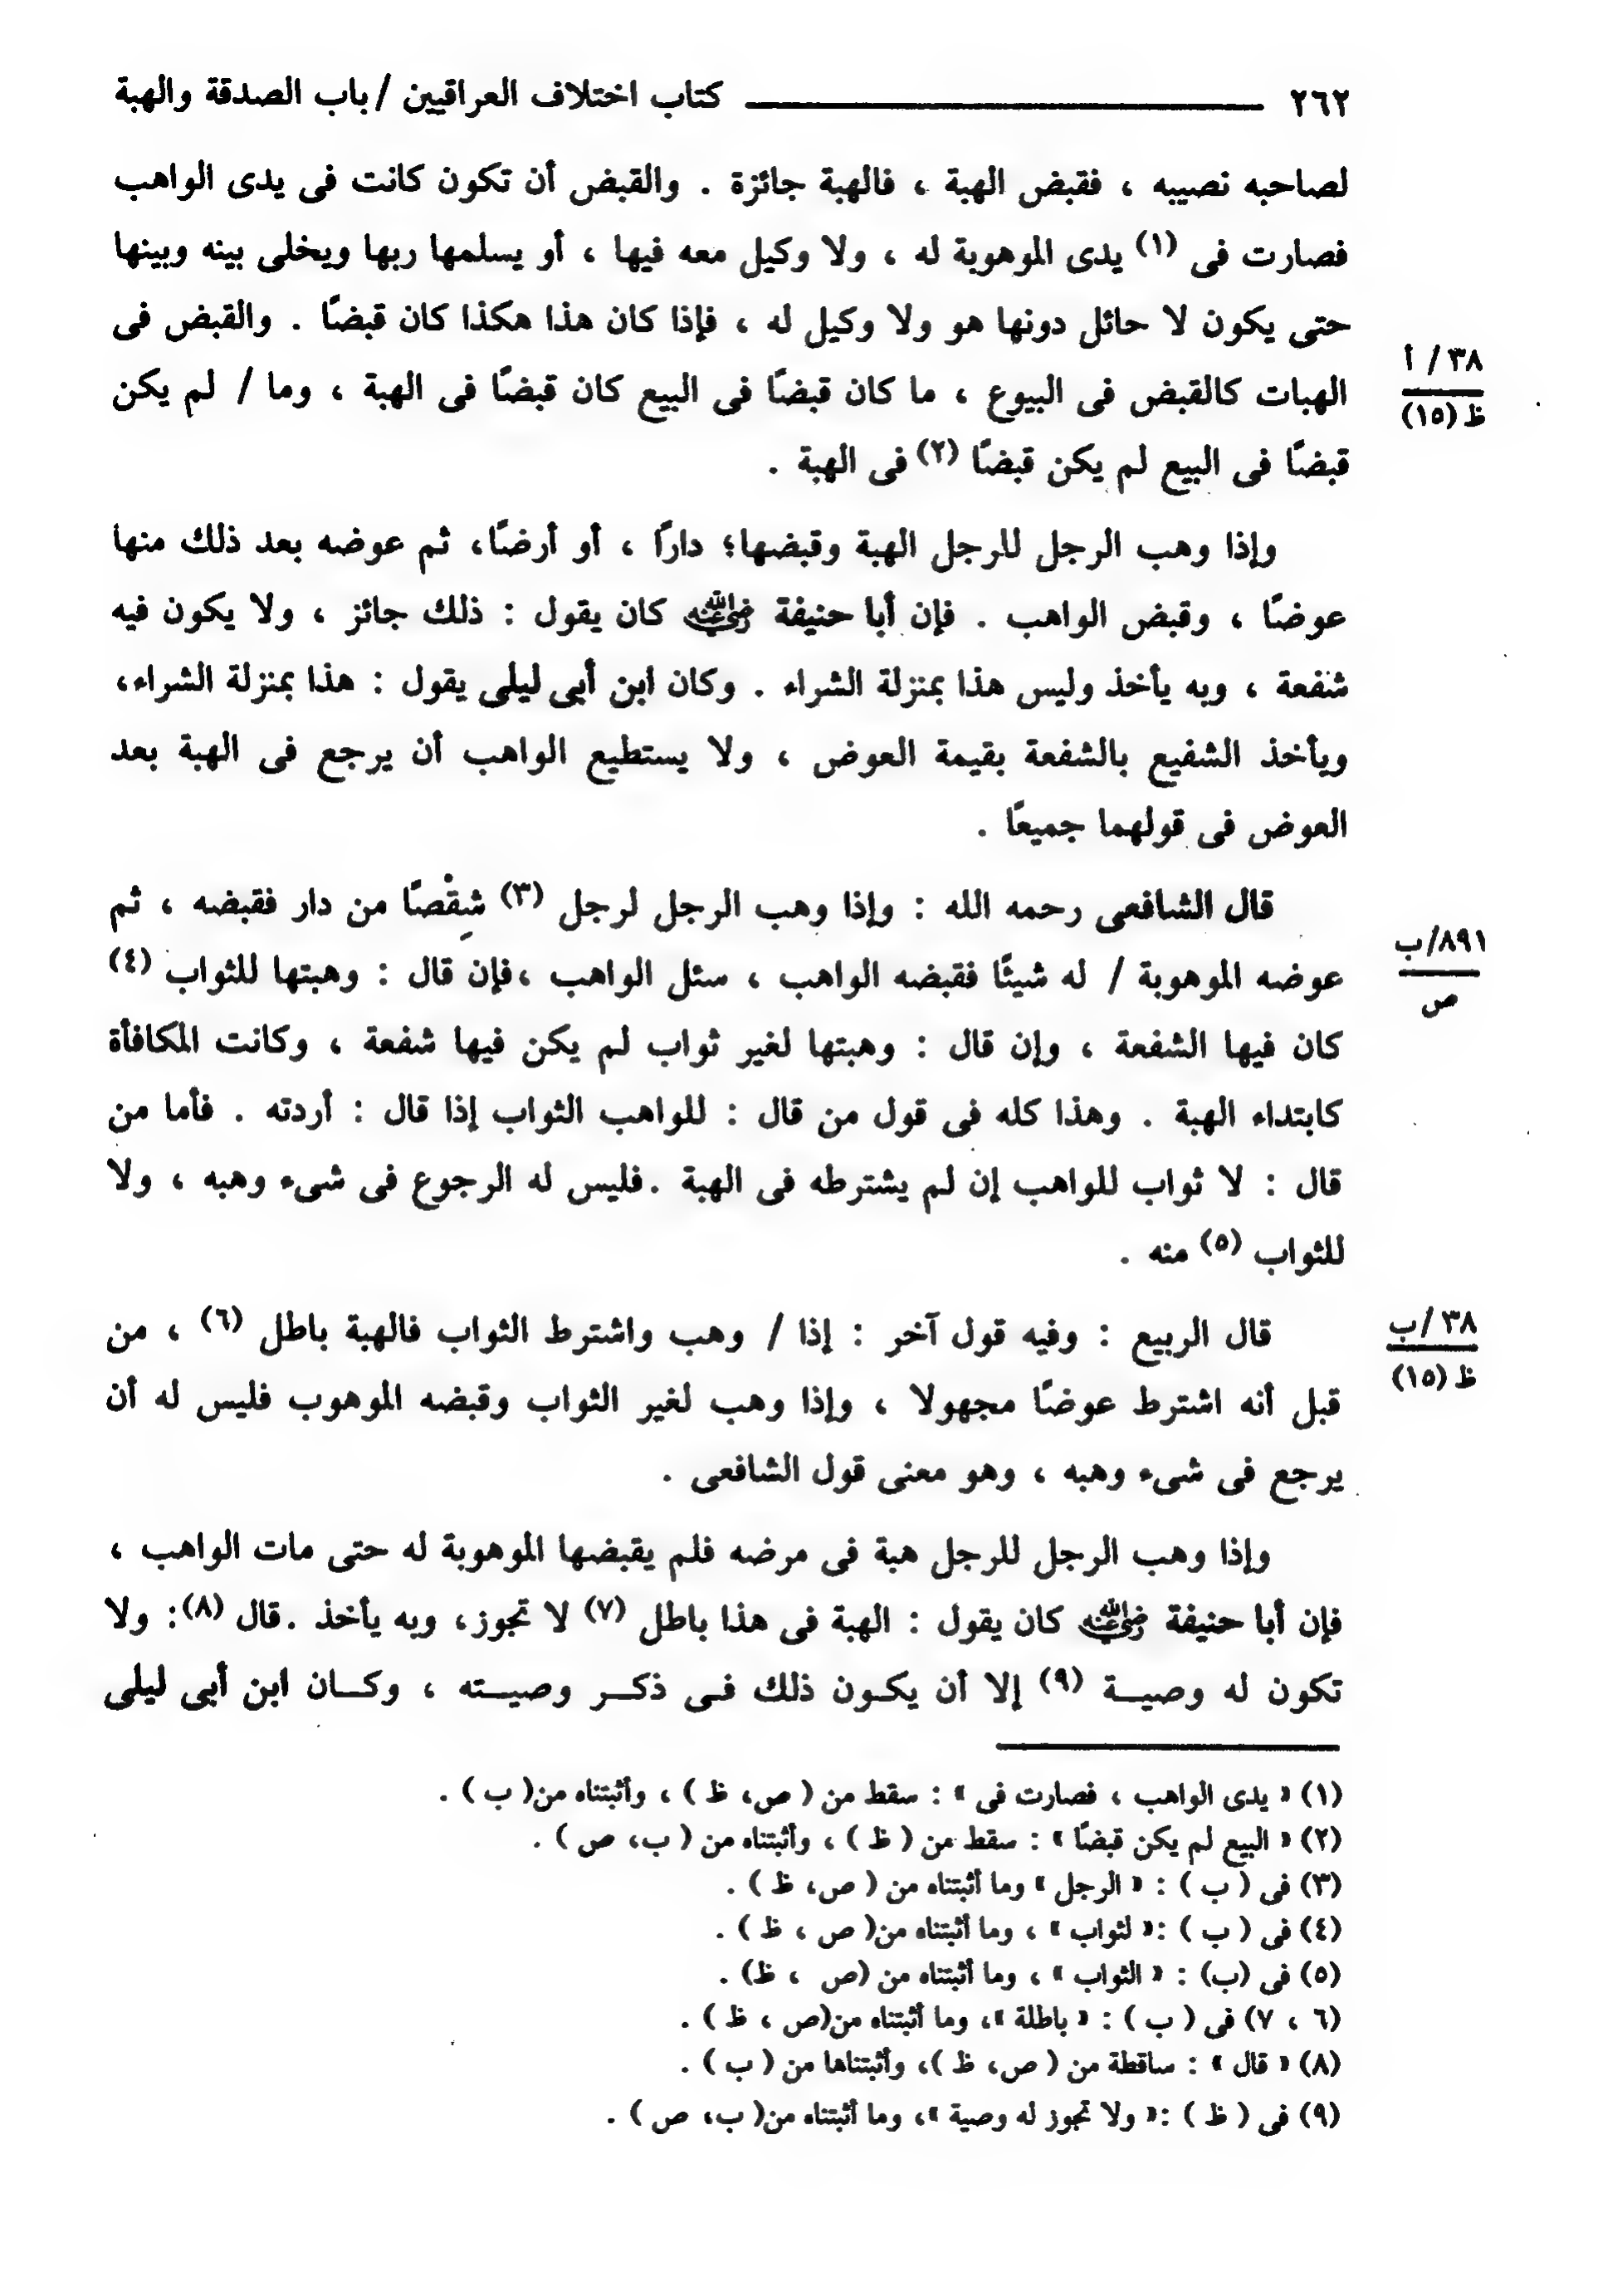 ٢٦٢ كتاب اختلاف العراقيين / باب الصدقة والهبة
لصاحبه نصيبه ، فقبض الهبة ، فالهبة جائزة . والقبض أن تكون كانت فى يدى الواهب
فصارت فى (١) يدى الموهوبة له ، ولا وكيل معه فيها ، أو يسلمها ربها ويخلى بينه وبينها
حتى يكون لا حائل دونها هو ولا وكيل له ، فإذا كان هذا هكذا كان قبضًا . والقبض فى
٣٨ / أ
ظ (١٥)
الهبات كالقبض فى البيوع ، ما كان قبضًا فى البيع كان قبضًا فى الهبة ، وما / لم يكن
قبضًا فى البيع لم يكن قبضًا (٢) فى الهبة .
وإذا وهب الرجل للرجل الهبة وقبضها؛ دارًا ، أو أرضًا، ثم عوضه بعد ذلك منها
عوضًا ، وقبض الواهب . فإن أبا حنيفة رضي الله عنه كان يقول : ذلك جائز ، ولا يكون فيه
شفعة ، وبه يأخذ وليس هذا بمنزلة الشراء . وكان ابن أبى ليلى يقول : هذا بمنزلة الشراء،
ويأخذ الشفيع بالشفعة بقيمة العوض ، ولا يستطيع الواهب أن يرجع فى الهبة بعد
العوض فى قولهما جميعًا .
قال الشافعى رحمه الله : وإذا وهب الرجل لرجل (٣) شِقْصًا من دار فقبضه ، ثم
٨٩١/ب
ص
عوضه الموهوبة / له شيئًا فقبضه الواهب ، سئل الواهب ،فإن قال : وهبتها للثواب (٤)
كان فيها الشفعة ، وإن قال : وهبتها لغير ثواب لم يكن فيها شفعة ، وكانت المكافأة
كابتداء الهبة . وهذا كله فى قول من قال : للواهب الثواب إذا قال : أردته . فأما من
قال : لا ثواب للواهب إن لم يشترطه فى الهبة .فليس له الرجوع فى شىء وهبه ، ولا
للثواب (٥) منه .
قال الربيع : وفيه قول آخر : إذا / وهب واشترط الثواب فالهبة باطل (٦) ، من
٣٨ /ب
ظ (١٥)
قبل أنه اشترط عوضًا مجهولا ، وإذا وهب لغير الثواب وقبضه الموهوب فليس له أن
يرجع فى شىء وهبه ، وهو معنى قول الشافعى .
وإذا وهب الرجل للرجل هبة فى مرضه فلم يقبضها الموهوبة له حتى مات الواهب ،
فإن أبا حنيفة رضي الله عنه كان يقول : الهبة فى هذا باطل (٧) لا تجوز، وبه يأخذ .قال (٨): ولا
تكون له وصيـة (٩) إلا أن يكـون ذلك فـى ذكـر وصيـته ، وكـان ابن أبى ليلى
(١) « يدى الواهب ، فصارت فى » : سقط من ( ص، ظ ) ، وأثبتناه من( ب ) .
(٢) « البيع لم يكن قبضًا » : سقط من ( ظ ) ، وأثبتناه من ( ب، ص ) .
(٣) فى ( ب ) : « الرجل » وما أثبتناه من ( ص، ظ ) .
(٤) فى ( ب ) :« لثواب » ، وما أثبتناه من( ص ، ظ ) .
(٥) فى (ب) : « الثواب » ، وما أثبتناه من (ص ، ظ) .
(٦ ، ٧) فى ( ب ) : « باطلة »، وما أثبتناه من(ص ، ظ ) .
(٨) « قال » : ساقطة من ( ص، ظ )، وأثبتناها من ( ب ) .
(٩) فى ( ظ ) :« ولا تجوز له وصية »، وما أثبتناه من( ب، ص ) .